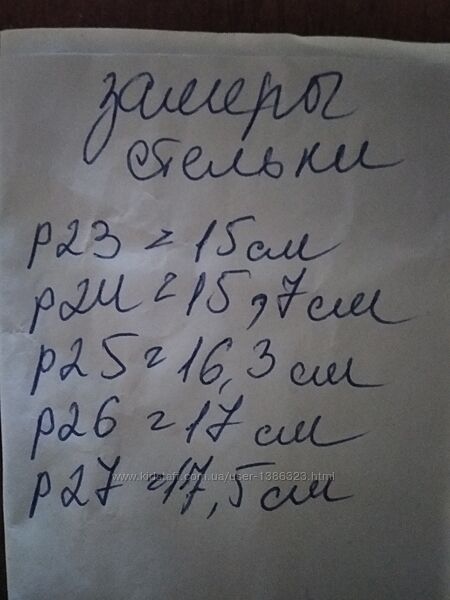 замеры
стельки
р23 = 15 см
р24 = 15,7 см
р25 = 16,3 см
р26 = 17 см
www.kidstaff.com.ua/user-1386323.html
р27 = 17,5 см